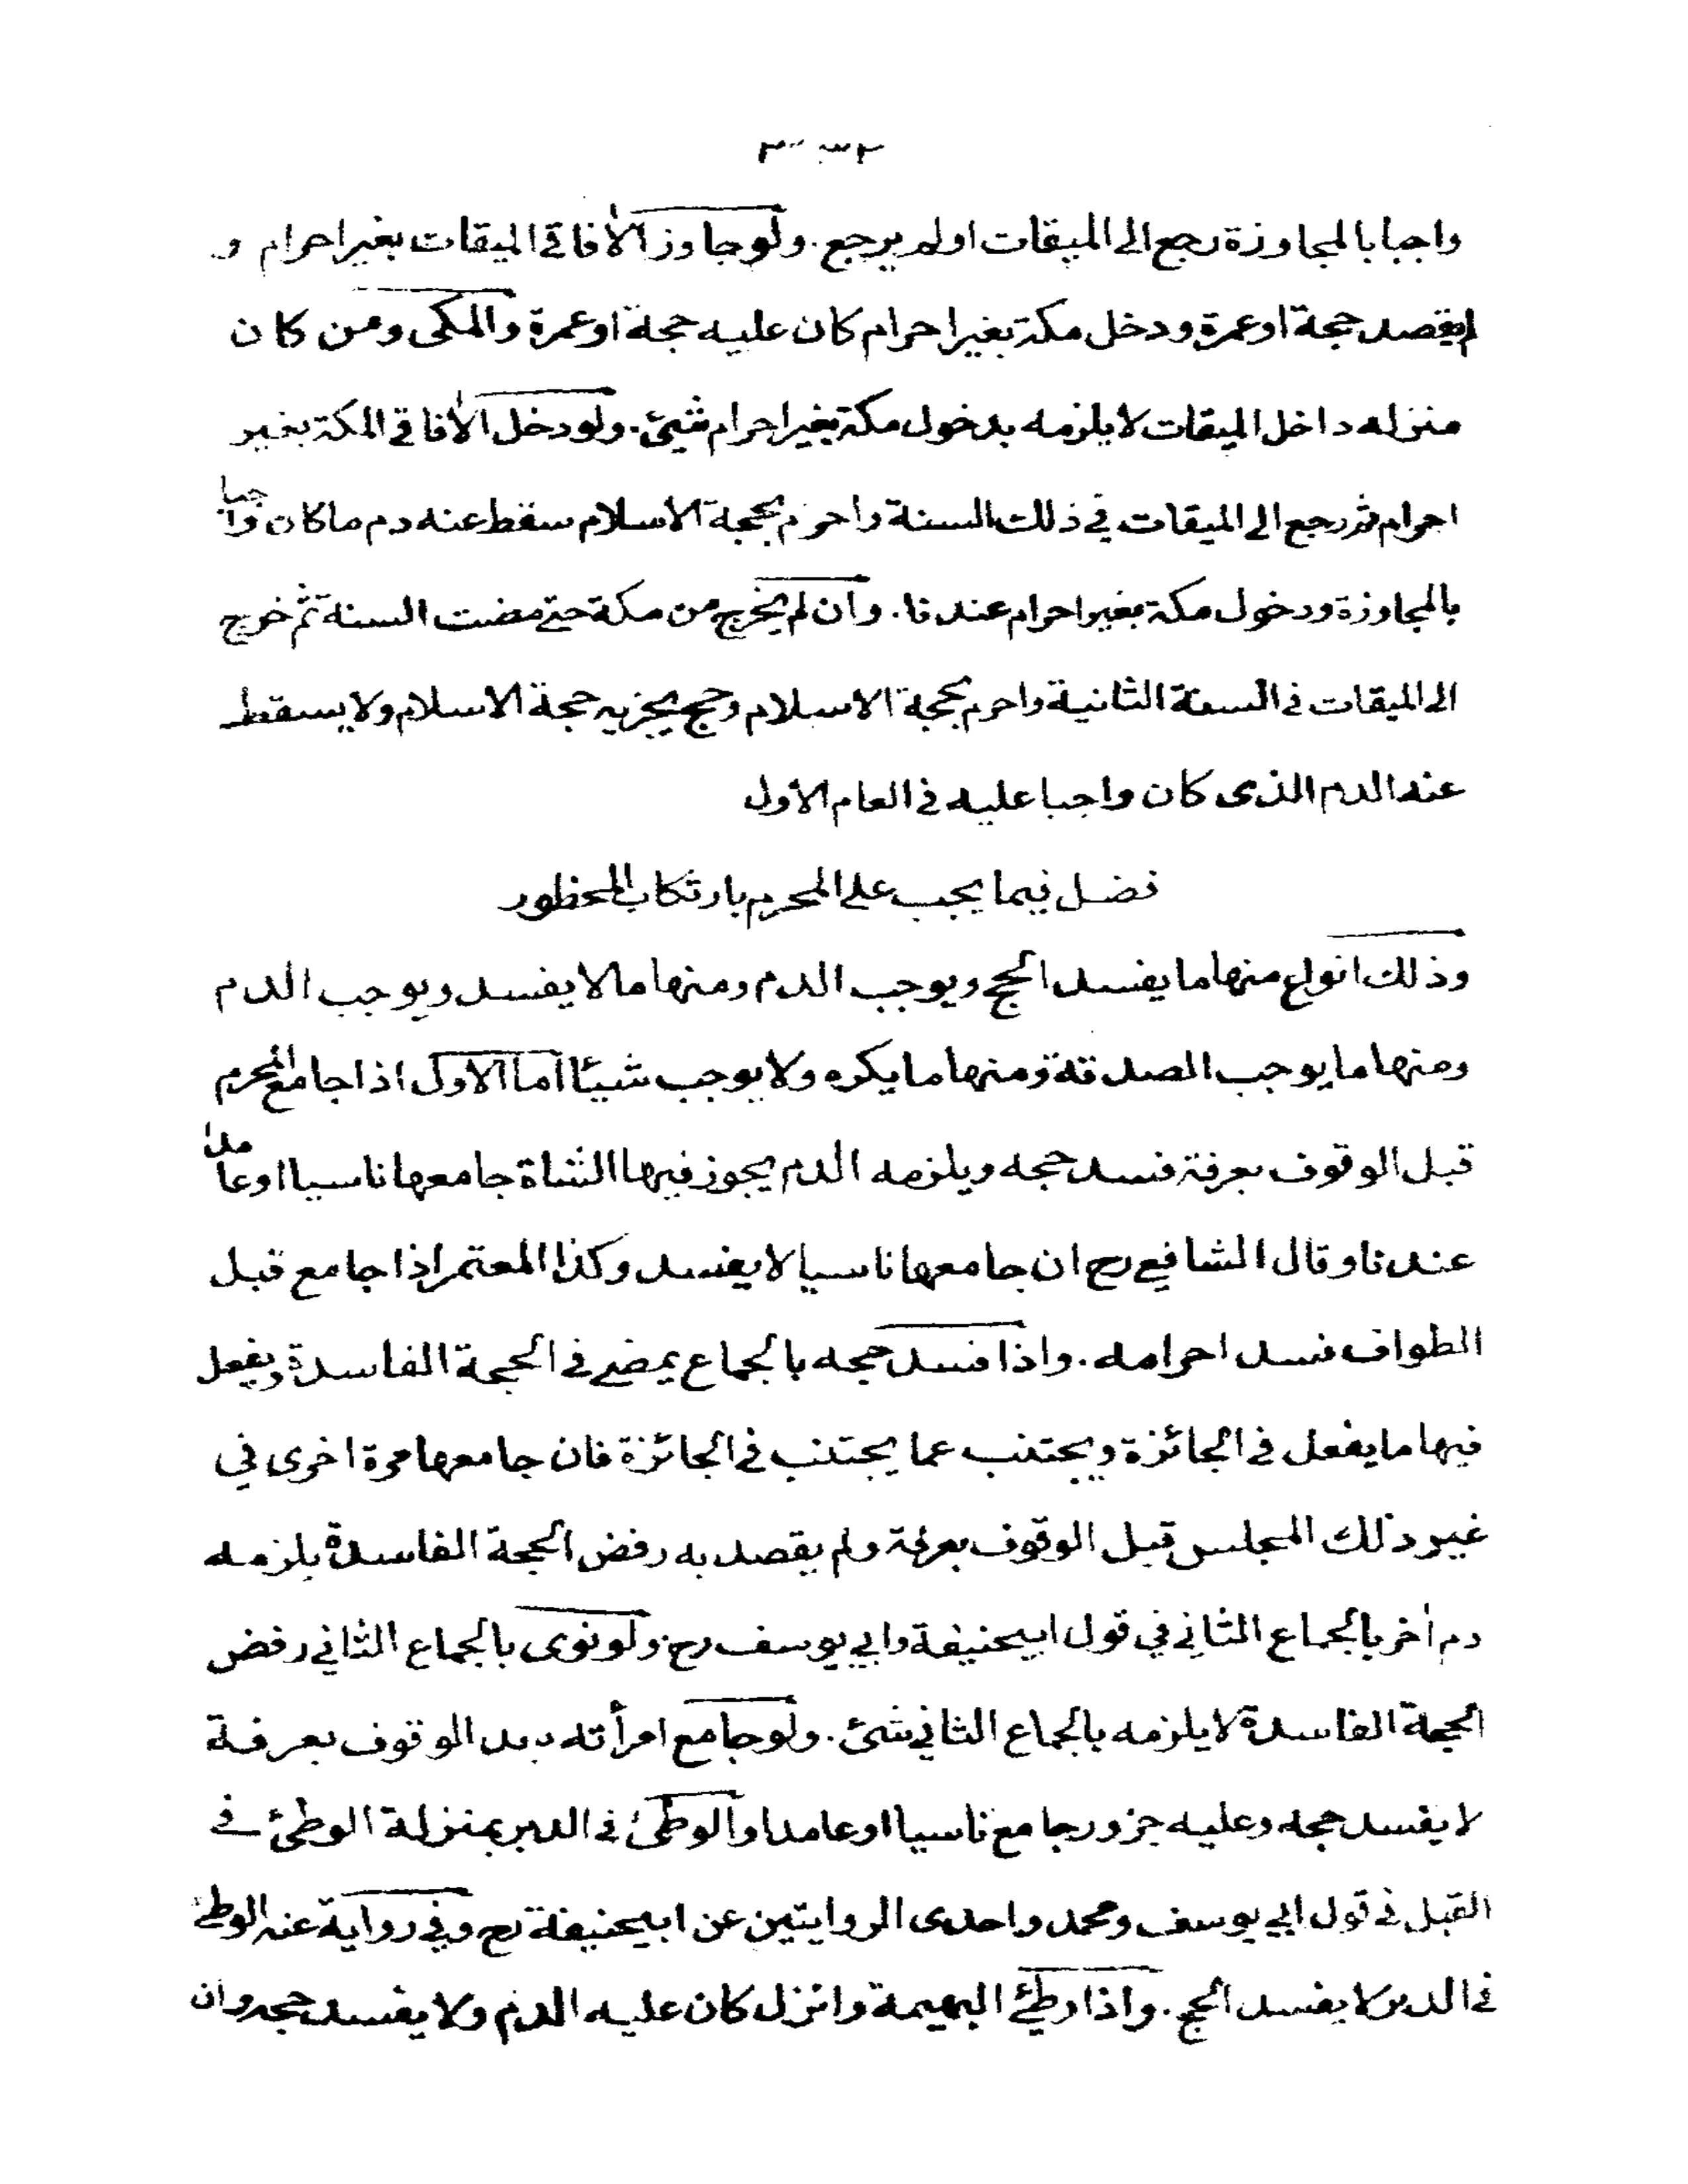 واجبا بالمجاوزة رجع الى الميقات او لم يرجع . ولو جاوز الآفاقى الميقات بغير احرام و
لم يقصد حجة او عمرة ودخل مكة بغير احرام كان عليه حجة او عمرة والمكى ومن كان
منزله داخل الميقات لا يلزمه بدخول مكة بغير احرام شيئ . ولو دخل الآفاقى المكة بغير
احرام ثم رجع الى الميقات في ذلك السنة واحرم بحجة الاسلام سقط عنه دم ما كان واجبا
بالمجاوزة ودخول مكة بغير احرام عندنا . وان لم يخرج من مكة حتى مضت السنة ثم خرج
الى الميقات في السنة الثانية واحرم بحجة الاسلام وحج يجزيه حجة الاسلام ولا يسقط
عنه الدم الذى كان واجبا عليه في العام الأول
فصل فيما يجب على المحرم بارتكاب المحظور
وذلك انواع منها ما يفسد الحج ويوجب الدم ومنها ما لا يفسد ويوجب الدم
ومنها ما يوجب الصدقة ومنها ما يكره ولا يوجب شيئا اما الاول اذا جامع المحرم
قبل الوقوف بعرفة فسد حجه ويلزمه الدم يجوز فيها الشاة جامعها ناسيا او عامدا
عندنا وقال الشافعي رح ان جامعها ناسيا لا يفسد وكذا المعتمر اذا جامع قبل
الطواف فسد احرامه . واذا فسد حجه بالجماع يمضي في الحجة الفاسدة ويفعل
فيها ما يفعل في الجائزة ويجتنب عما يجتنب في الجائزة فان جامعها مرة اخرى في
غير ذلك المجلس قبل الوقوف بعرفة ولم يقصد به رفض الحجة الفاسدة يلزمه
دم آخر بالجماع الثاني في قول ابيحنيفة وابي يوسف رح ولو نوى بالجماع الثاني رفض
الحجة الفاسدة لا يلزمه بالجماع الثاني شئ . ولو جامع امرأته بعد الوقوف بعرفة
لا يفسد حجه وعليه جزور جامع ناسيا او عامدا والوطئ في الدبر بمنزلة الوطئ في
القبل في قول ابي يوسف ومحمد واحدى الروايتين عن ابيحنيفة رح وفي رواية عنه الوطئ
في الدبر لا يفسد الحج . واذا وطئ البهيمة وانزل كان عليه الدم ولا يفسد حجه وان